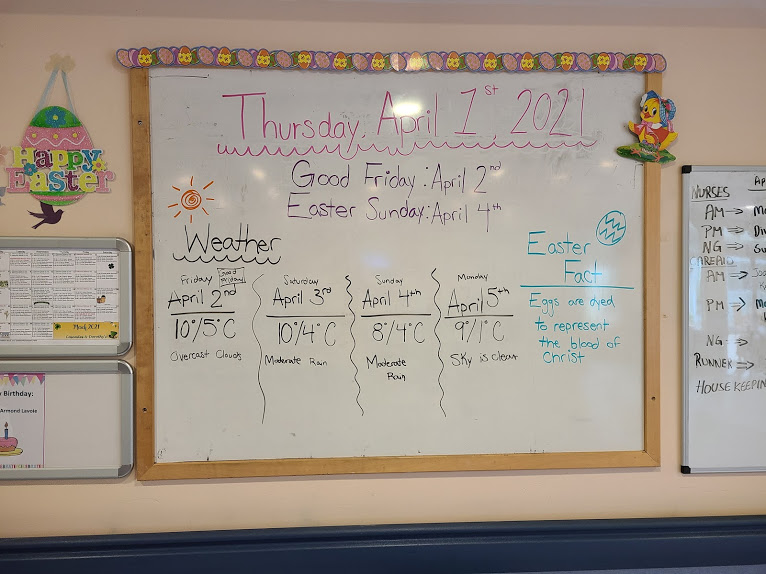 Happy
Easter
Thursday, April 1st, 2021
Good Friday : April 2nd
Easter Sunday: April 4th
Weather
Friday Good Friday
April 2nd
10°/5°C
Overcast Clouds
Saturday
April 3rd
10°/4°C
Moderate Rain
Sunday
April 4th
8°/4°C
Moderate
Rain
Monday
April 5th
9°/1°C
Sky is clear
Easter
Fact
Eggs are dyed
to represent
the blood of
Christ
March 2021
Birthday:
Armond Lavoie
NURSES
AM
PM
NG
CAREAID
AM
PM
NG
RUNNER
HOUSE KEEPIN